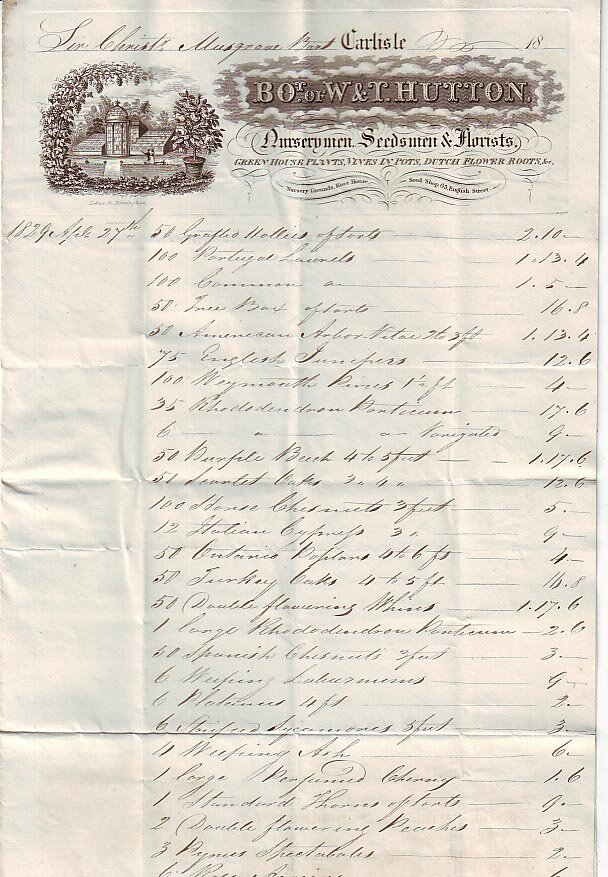 Sir Christr. Musgrave Bart Carlisle Dr 18
BOT. OF W & T. HUTTON,
Nurserymen, Seedsmen & Florists,
GREEN HOUSE PLANTS, VINES IN POTS, DUTCH FLOWER ROOTS, &c.
Nursery Grounds, Rose House, Seed Shop 63 English Street
1829 Apl. 27th 50 Grafted Hollies of sorts 2.10.-
100 Portugal Laurels 1.13.4
100 Common Do 1.5-
50 Tree Box of sorts 16.8
50 American Arbor Vitae 2 to 3 ft 1.13.4
75 English Junipers 12.6
100 Weymouth Pines 1½ ft 4-
35 Rhododendron Ponticum 17.6
6 - Do - Do Varigated 9-
50 Purple Beech 4 to 5 feet 1.17.6
50 Scarlet Oaks 3 " 4 " 12.6
100 Horse Chesnuts 3 feet 5-
12 Italian Cypress 3 " 9-
50 Ontario Poplars 4 to 6 ft 4-
50 Turkey Oaks 4 to 5 ft 16.8
50 Double flowering Whins 1.17.6
1 large Rhododendron Ponticum 2.6
50 Spanish Chesnuts 3 feet 3-
6 Weeping Laburnums 9-
6 Platanus 4 ft 2-
6 Striped Sycamores 5 feet 3-
4 Weeping Ash 6-
1 large Perfumed Cherry 1.6
1 Standard Thorns of sorts 9-
2 Double flowering Peaches 3-
3 Pyrus Spectabilis 2-